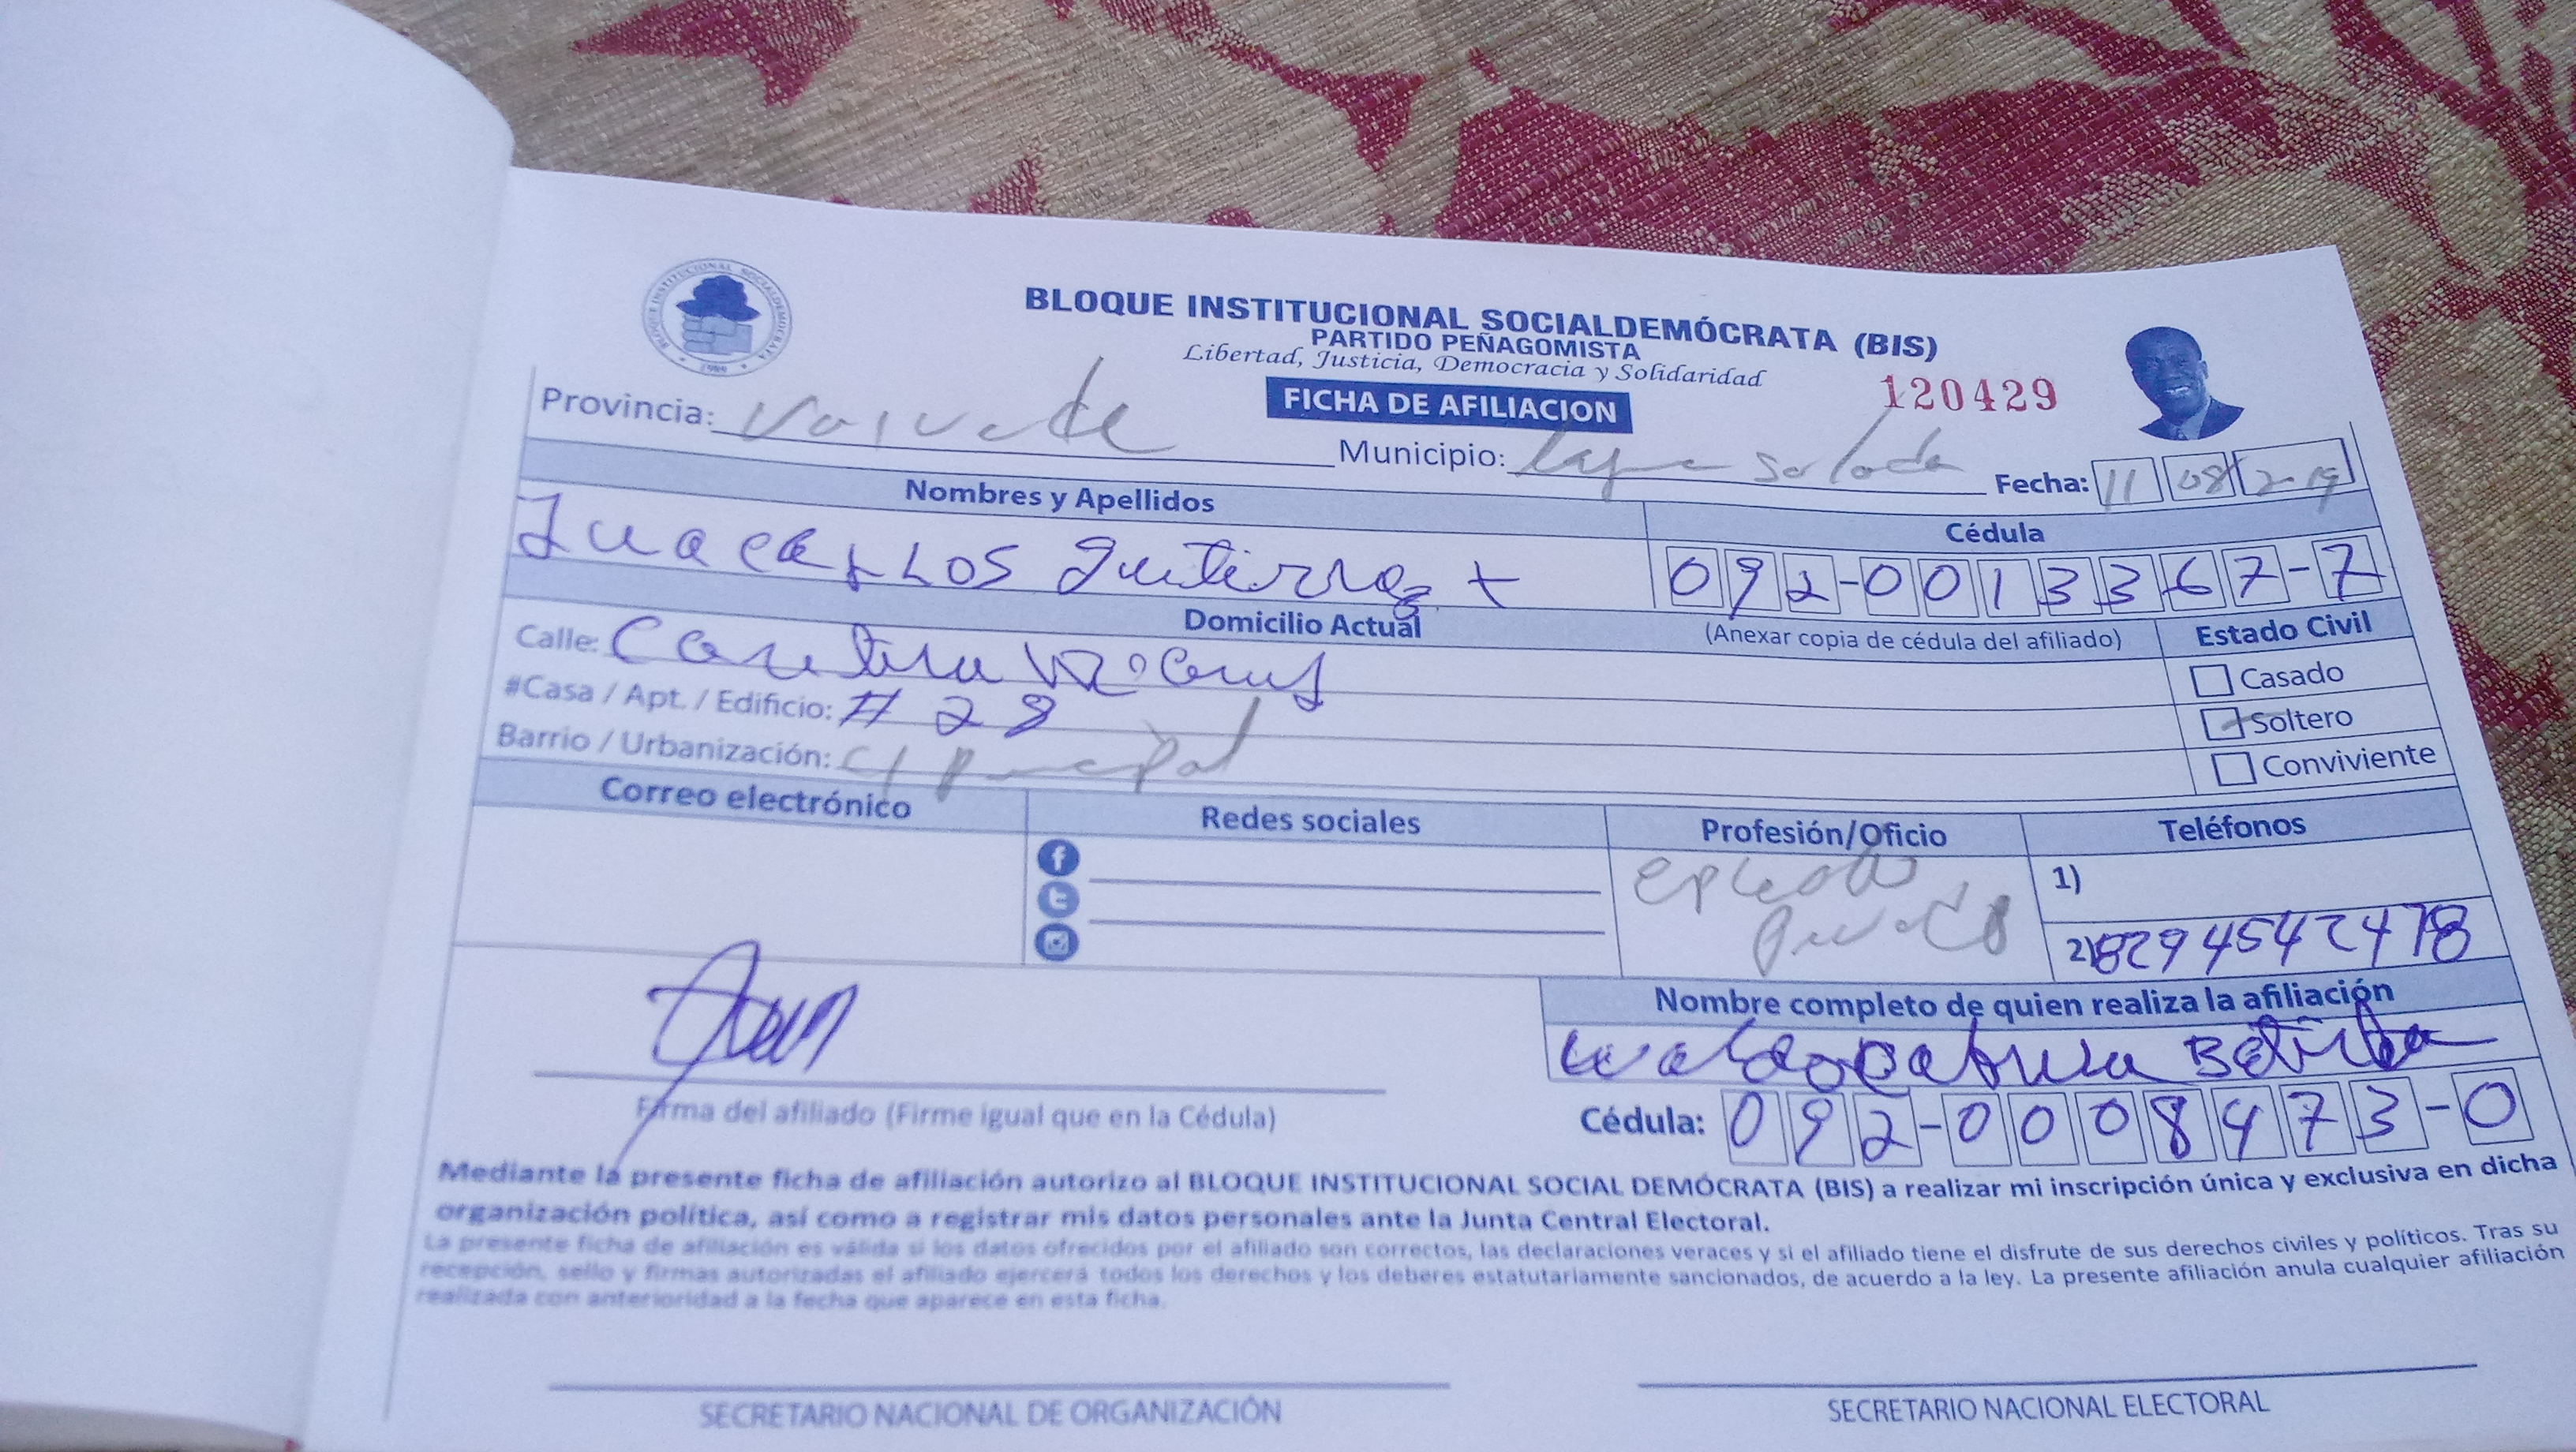 BLOQUE INSTITUCIONAL SOCIALDEMÓCRATA (BIS)
PARTIDO PEÑAGOMISTA
Libertad, Justicia, Democracia y Solidaridad
120429
FICHA DE AFILIACION
Provincia: Valverde
Municipio: Laguna Salada
Fecha: 11 08
Nombres y Apellidos
Cédula
Carlos Gutierrez
092-0013367-7
Domicilio Actual
(Anexar copia de cédula del afiliado)
Estado Civil
Calle:
Casado
#Casa / Apt. / Edificio: # 28
Soltero
Barrio / Urbanización: C/ Principal
Conviviente
Correo electrónico
Redes sociales
Profesión/Oficio
Teléfonos
1)
2) 8294542478
Nombre completo de quien realiza la afiliación
Firma del afiliado (Firme igual que en la Cédula)
Cédula: 092-0008473-0
Mediante la presente ficha de afiliación autorizo al BLOQUE INSTITUCIONAL SOCIAL DEMÓCRATA (BIS) a realizar mi inscripción única y exclusiva en dicha
organización política, así como a registrar mis datos personales ante la Junta Central Electoral.
La presente ficha de afiliación es válida si los datos ofrecidos por el afiliado son correctos, las declaraciones veraces y si el afiliado tiene el disfrute de sus derechos civiles y políticos. Tras su
recepción, sello y firmas autorizadas el afiliado ejercerá todos los derechos y los deberes estatutariamente sancionados, de acuerdo a la ley. La presente afiliación anula cualquier afiliación
realizada con anterioridad a la fecha que aparece en esta ficha.
SECRETARIO NACIONAL DE ORGANIZACIÓN
SECRETARIO NACIONAL ELECTORAL